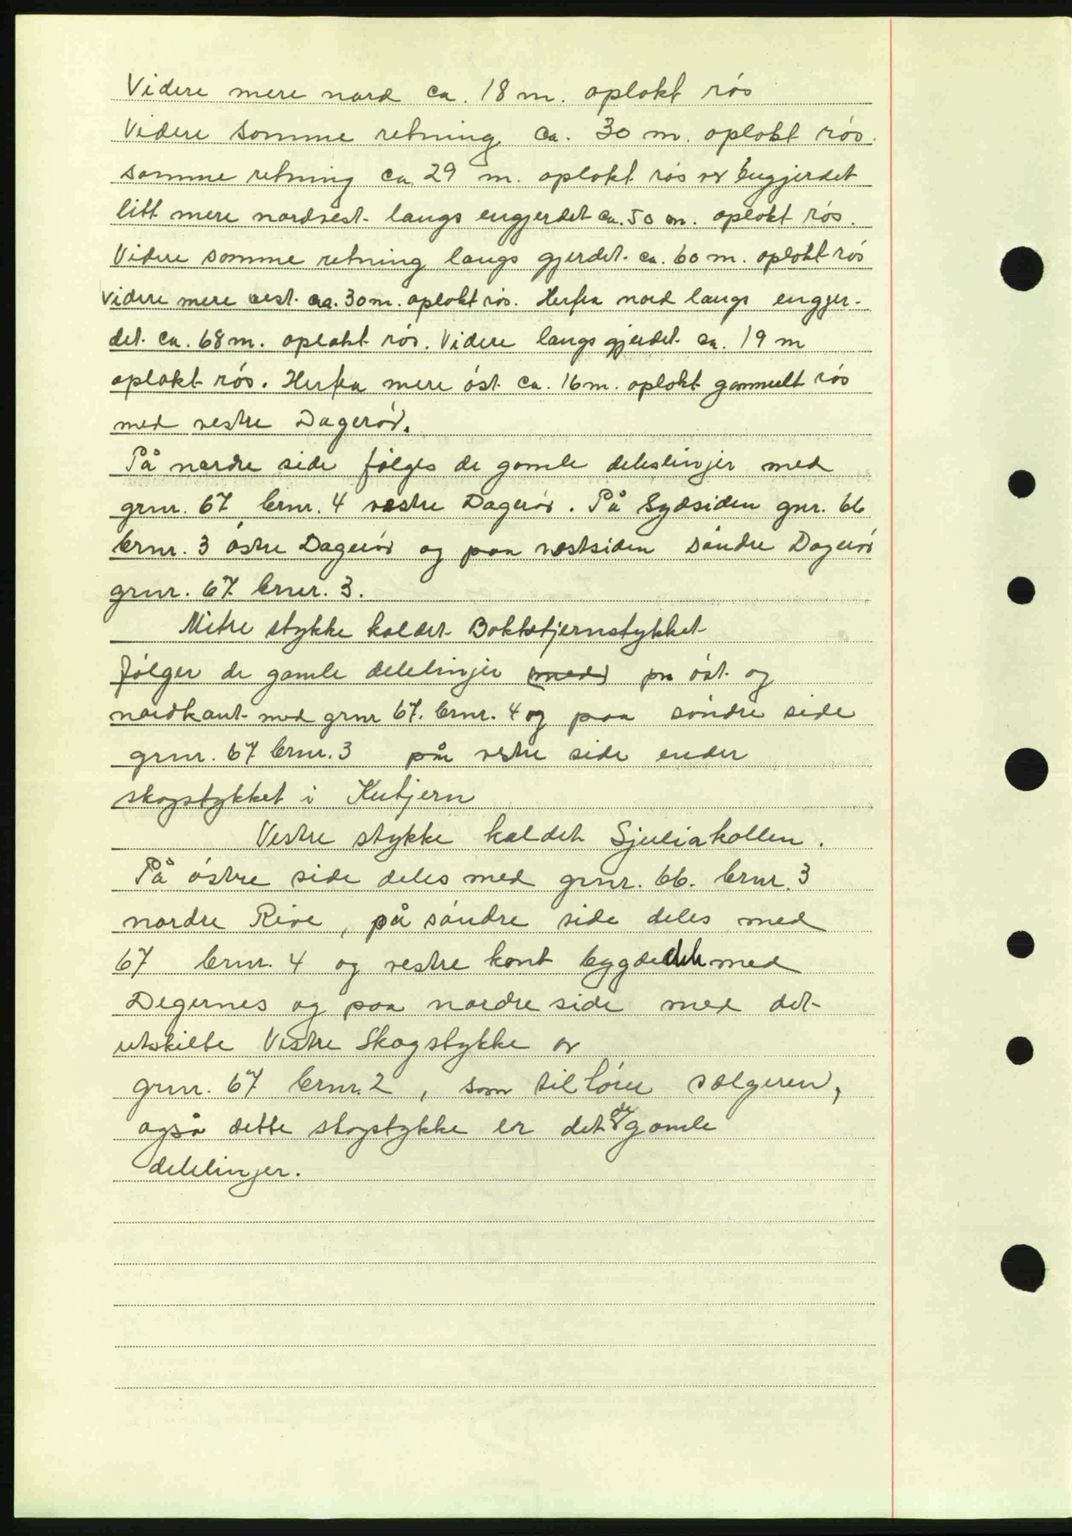 Videre mere nord ca. 18 m. oplokt rós
Videre samme retning ca. 30 m. oplokt rós.
samme retning ca 29 m. oplokt rós ve engjerdet
litt mere nordvest langs engjerdet ca. 50 m. oplokt rós.
Videre samme retning langs gjerdet ca. 60 m. oplokt rós
Videre mere vest ca. 30 m. oplokt rós. Herfra nord langs engjer-
det ca. 68 m. oplokt rós. Videre langs gjerdet ca. 19 m
oplokt rós. Herfra mere óst ca. 16 m. oplokt gammelt rós
med vestre Dageród.
På nordre side fólges de gamle delelinjer med
grnr. 67 brnr. 4 vestre Dageród. På Sydsiden gnr. 66
brnr. 3 óstre Dageród og paa vestsiden sóndre Dageród
grnr. 67 brnr. 3.
Mitre stykke kaldet Boktstjernstykket
fólger de gamle delelinjer (med) på óst og
nordkant med grnr 67. brnr. 4 og paa sóndre side
grnr. 67 brnr. 3 på vestre side ender
skogstykket i Kutjern
Vestre stykke kaldet Sjuliakollen.
På óstre side deles med grnr. 66. brnr. 3
nordre Rive, på sóndre side deles med
67 brnr. 4 og vestre kant bygdedele med
Degernes og paa nordre side med det
utskilte Vestre Skogstykke av
grnr. 67 brnr. 2, som tilhórer selgeren,
også dette skogstykke er det de gamle
delelinjer.